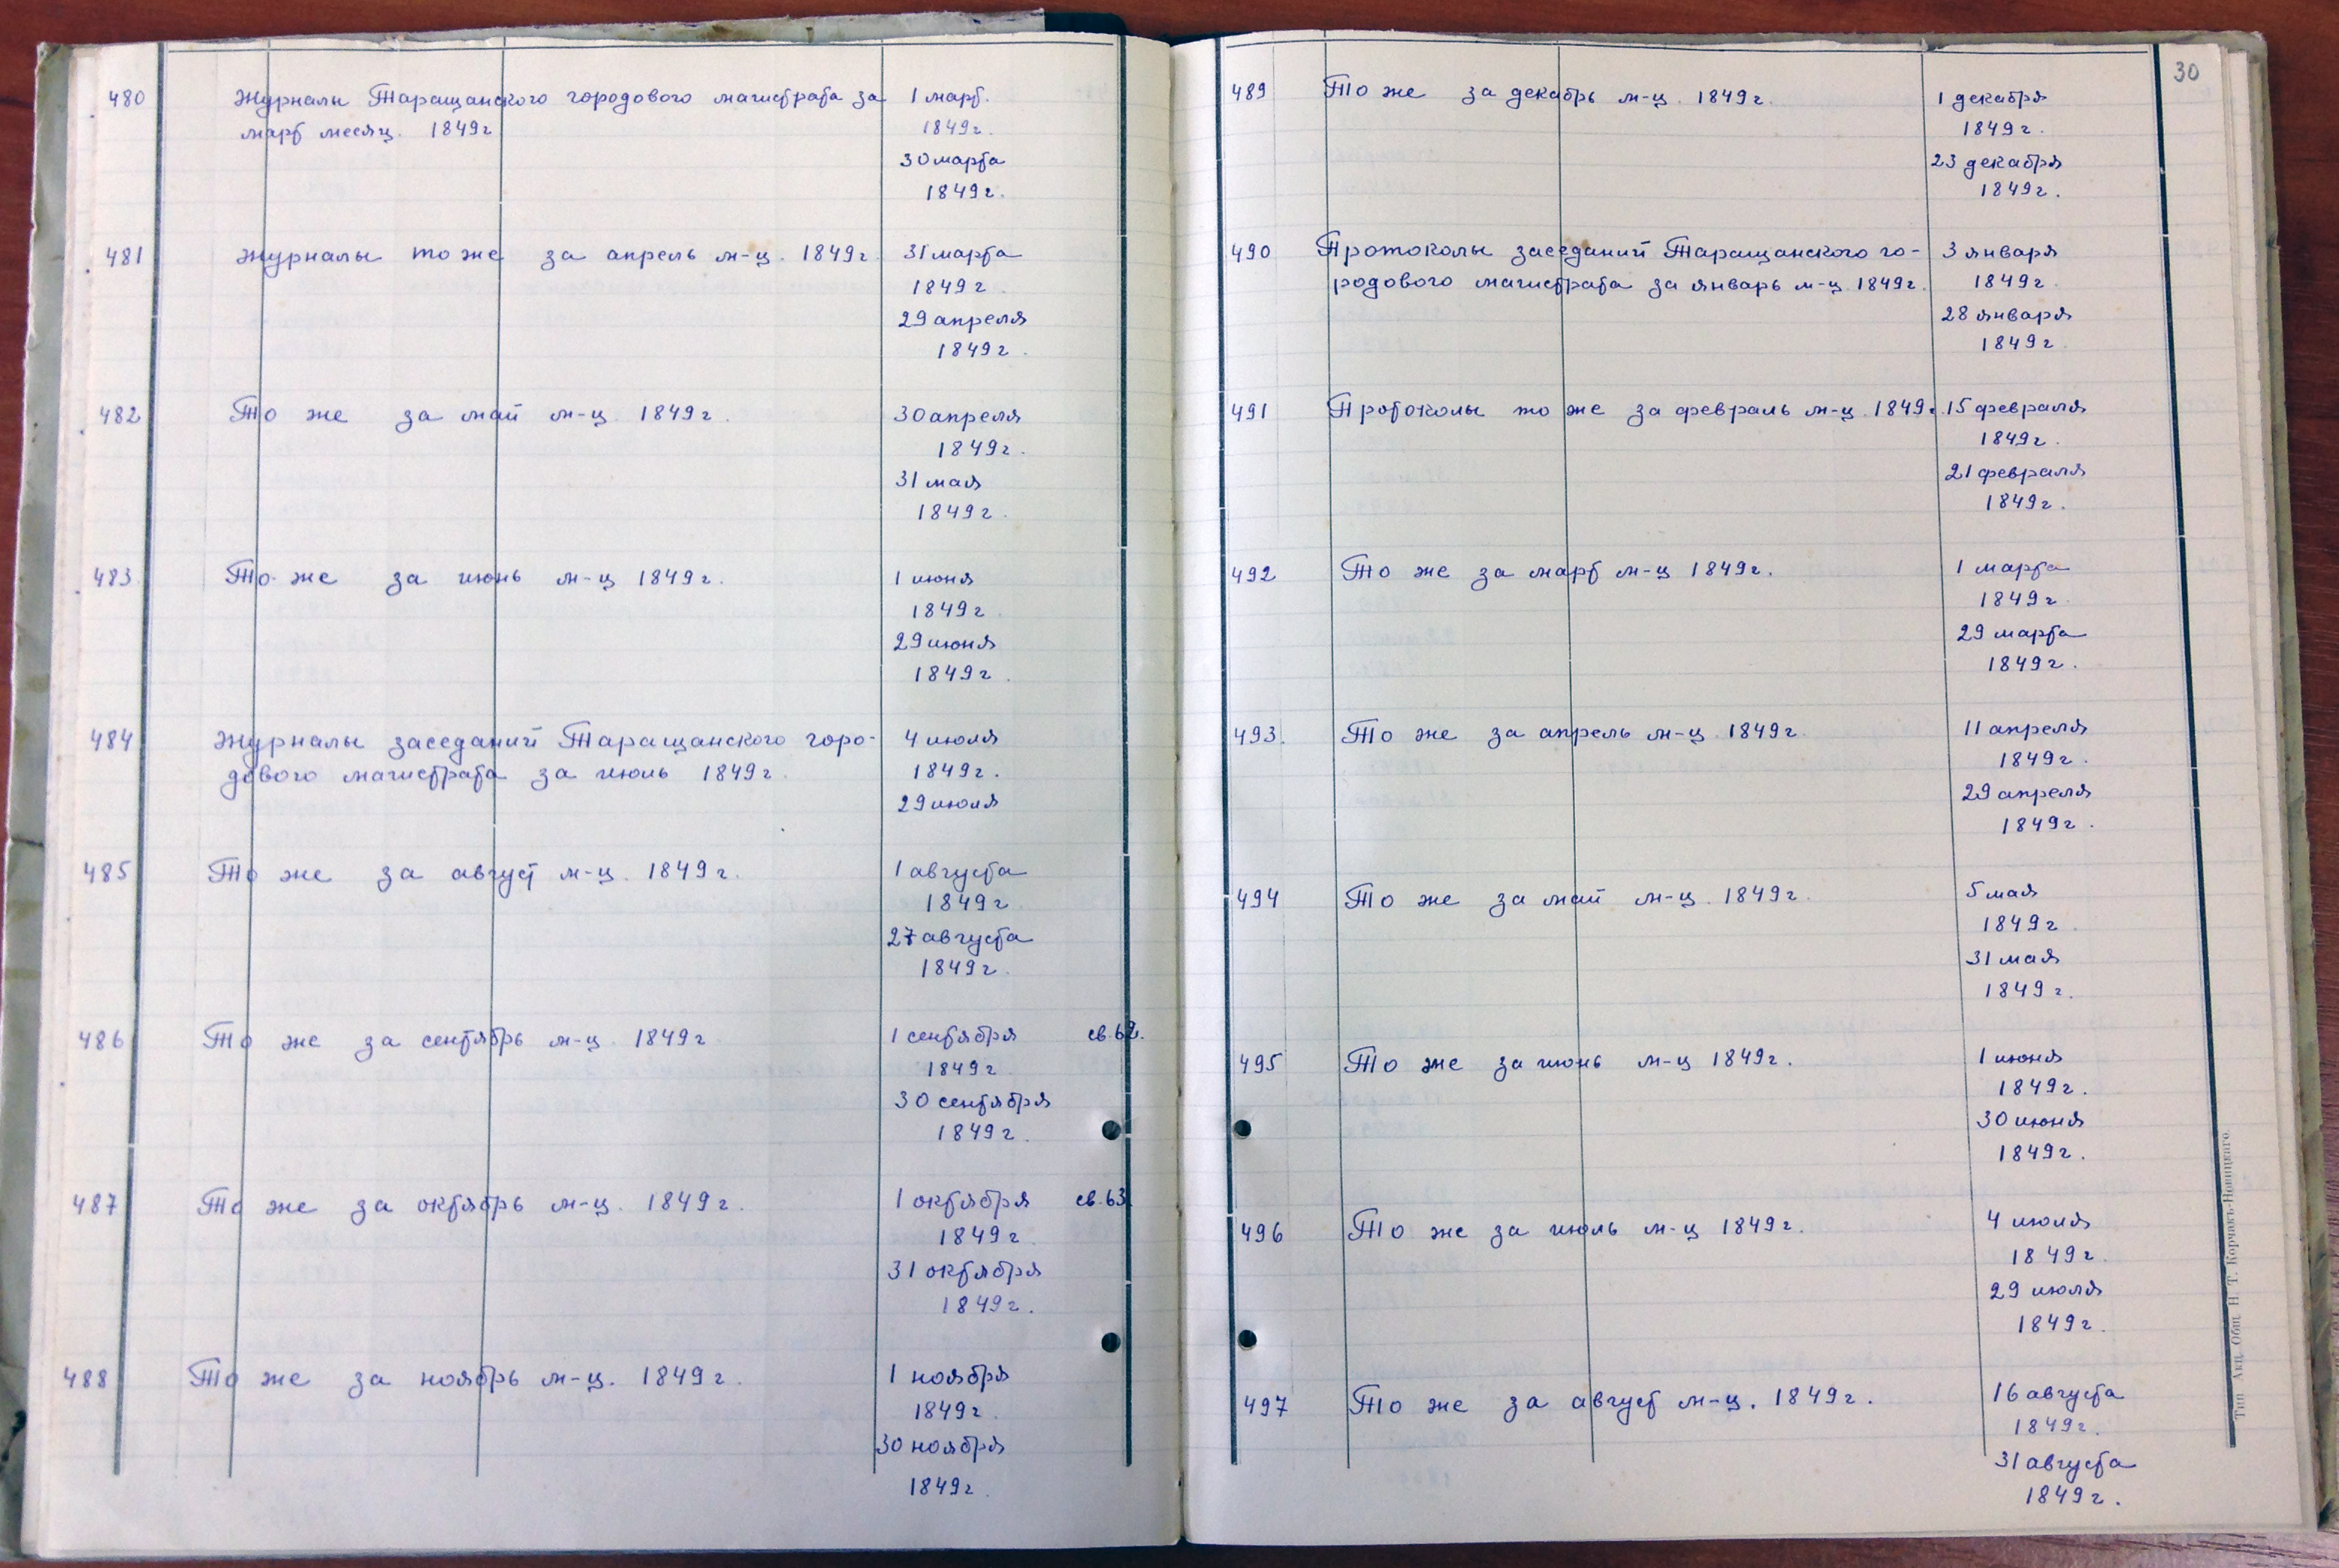 480 Журналы Таращанского городового магистрата за 1 март.
март месяц. 1849г 1849г.
30 марта
1849г.
481 Журналы то же за апрель м-ц. 1849г. 31 марта
1849г.
29 апреля
1849г.
482 То же за май м-ц. 1849г. 30 апреля
1849г.
31 мая
1849г.
483 То же за июнь м-ц 1849г. 1 июня
1849г.
29 июня
1849г.
484 Журналы заседаний Таращанского горо- 4 июля
дового магистрата за июль 1849г. 1849г.
29 июля
485 То же за август м-ц. 1849г. 1 августа
1849г.
27 августа
1849г.
486 То же за сентябрь м-ц. 1849г 1 сентября св.62.
1849г.
30 сентября
1849г.
487 То же за октябрь м-ц. 1849г. 1 октября св.63.
1849г.
31 октября
1849г.
488 То же за ноябрь м-ц. 1849г. 1 ноября
1849г.
30 ноября
1849г.
30
489 То же за декабрь м-ц. 1849г. 1 декабря
1849г.
23 декабря
1849г.
490 Протоколы заседаний Таращанского го- 3 января
родового магистрата за январь м-ц. 1849г. 1849г.
28 января
1849г.
491 Протоколы то же за февраль м-ц. 1849г. 15 февраля
1849г.
21 февраля
1849г.
492 То же за март м-ц 1849г. 1 марта
1849г.
29 марта
1849г.
493. То же за апрель м-ц. 1849г. 11 апреля
1849г.
29 апреля
1849г.
494 То же за май м-ц. 1849г. 5 мая
1849г.
31 мая
1849г.
495 То же за июнь м-ц 1849г. 1 июня
1849г.
30 июня
1849г.
496 То же за июль м-ц 1849г. 4 июля
1849г.
29 июля
1849г.
497 То же за август м-ц. 1849г. 16 августа
1849г.
31 августа
1849г.
Тип. Акц. Общ. Н. Т. Корчакъ-Новицкаго.